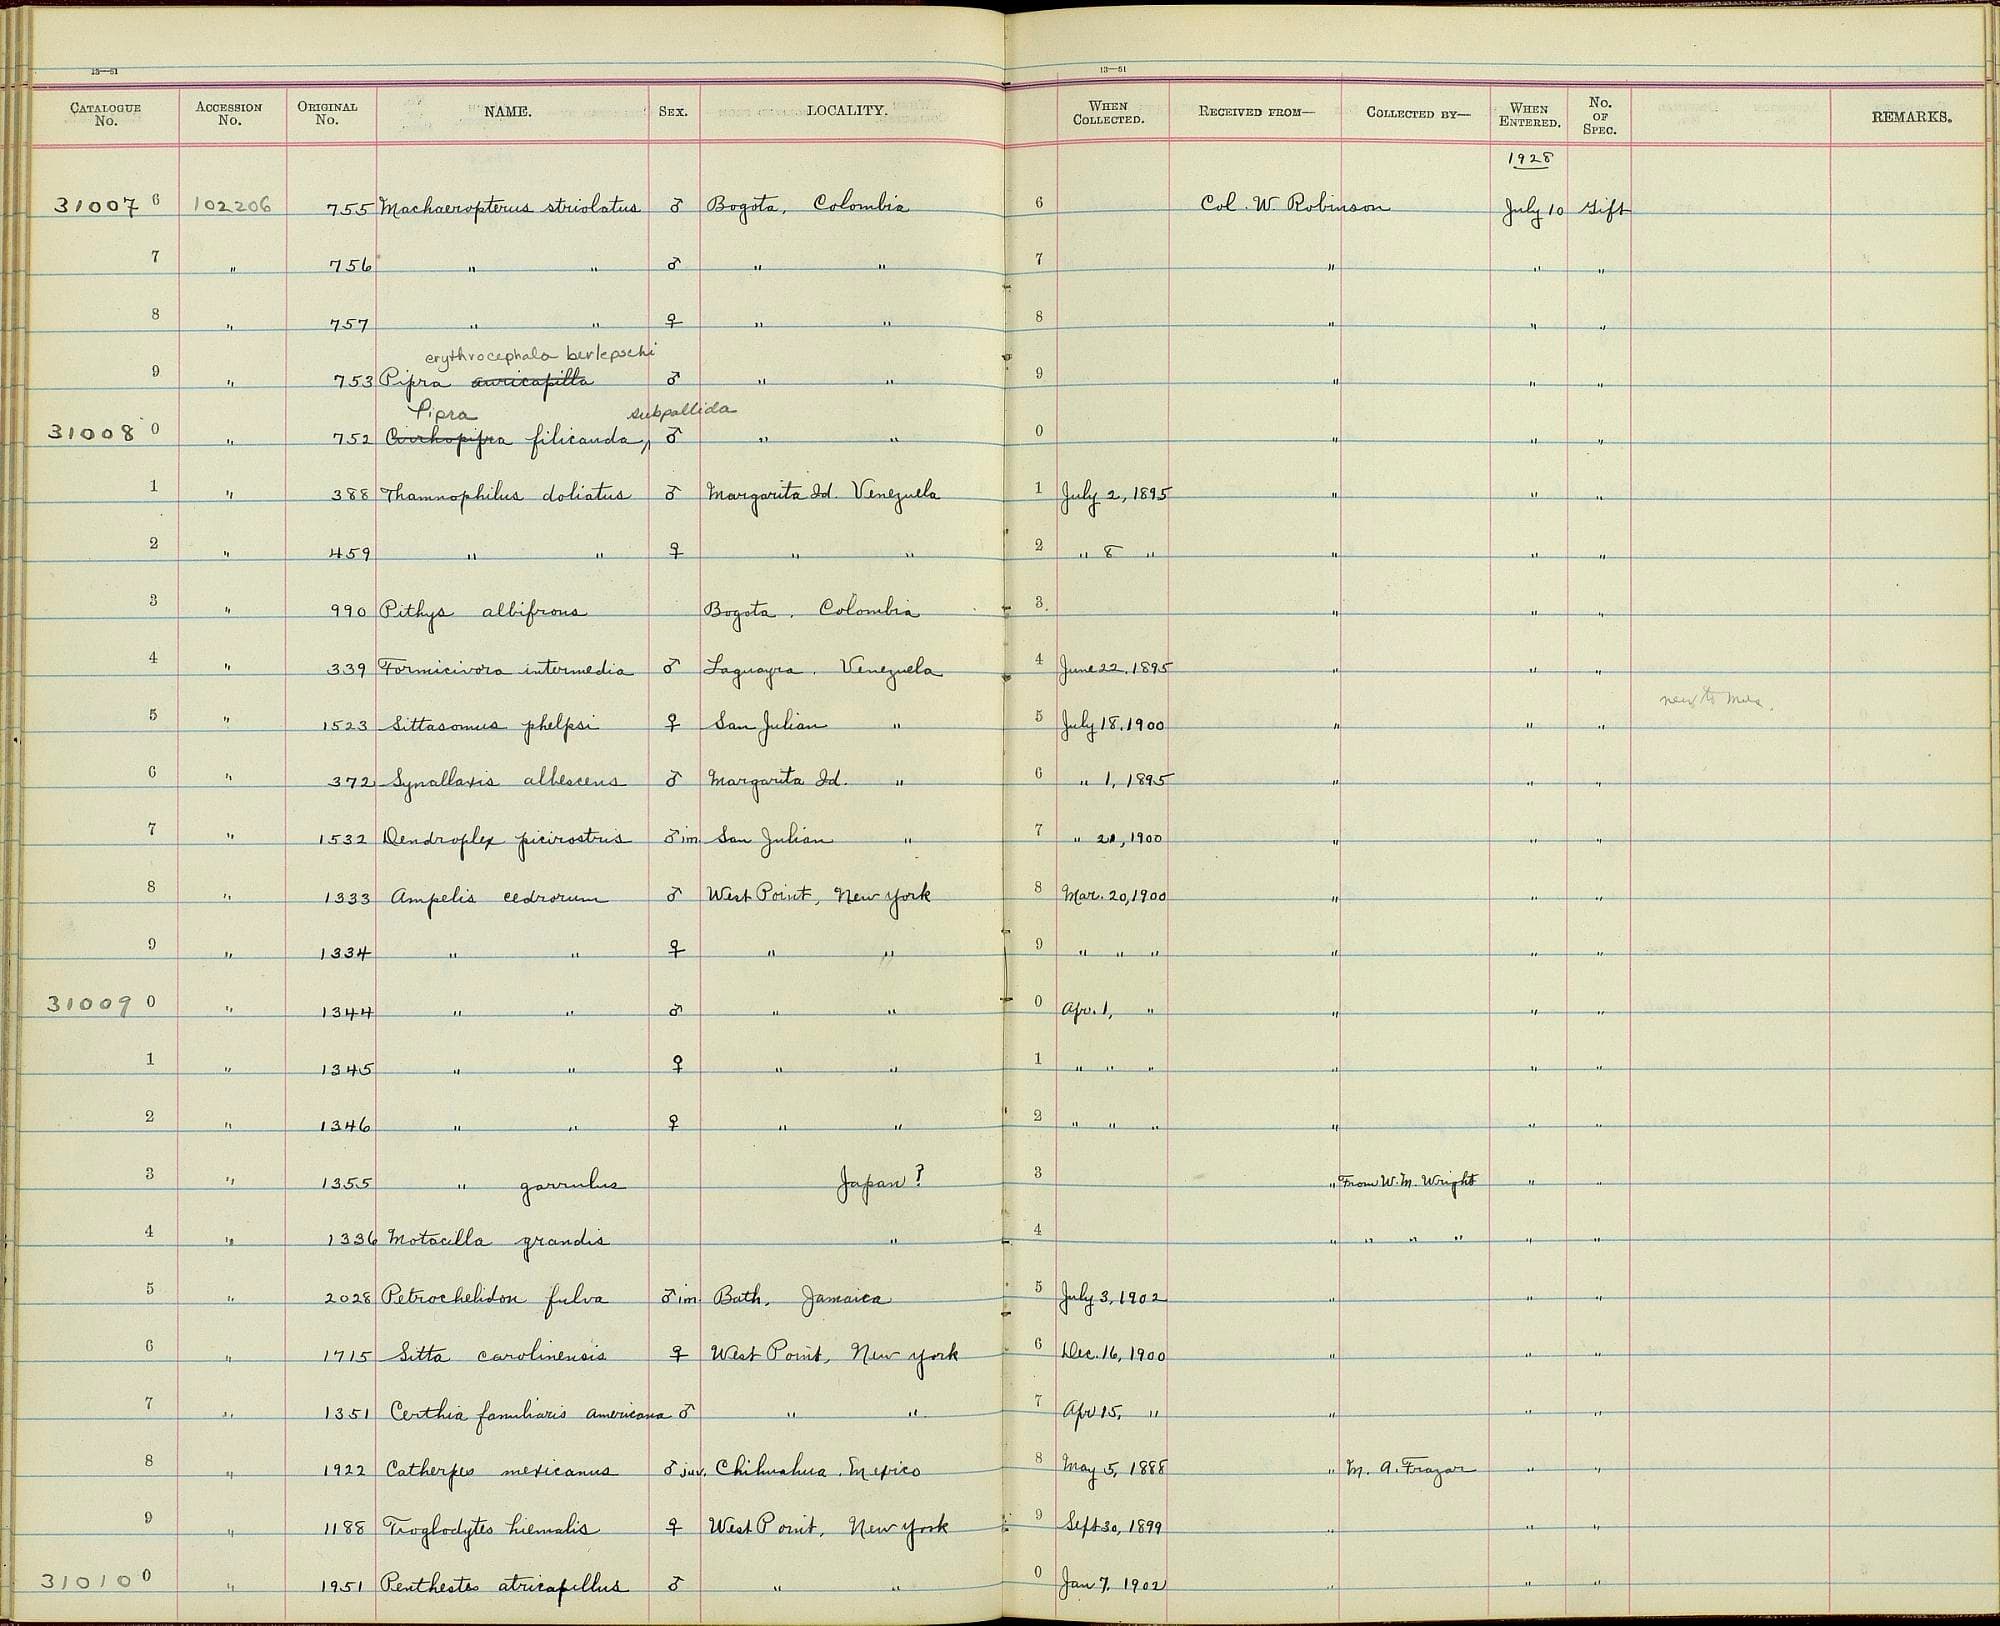 13—51 13—51
CATALOGUE No. ACCESSION No. ORIGINAL No. NAME. SEX. LOCALITY. WHEN COLLECTED. RECEIVED FROM— COLLECTED BY— WHEN ENTERED. No. OF SPEC. REMARKS.
1928
31007 6 102206 755 Machaeropterus striolatus ♂ Bogota, Colombia 6 Col. W. Robinson July 10 Gift
7 " 756 " " ♂ " " 7 " " "
8 " 757 " " ♀ " " 8 " " "
erythrocephala berlepschi
9 " 753 Pipra auricapilla ♂ " " 9 " " "
Pipra subpallida
31008 0 " 752 Cirrhopipra filicauda, ♂ " " 0 " " "
1 " 388 Thamnophilus doliatus ♂ Margarita Id. Venezuela 1 July 2, 1895 " " "
2 " 459 " " ♀ " " 2 " 8 " " " "
3 " 990 Pithys albifrons Bogota, Colombia 3 " " "
4 " 339 Formicivora intermedia ♂ Laguayra, Venezuela 4 June 22, 1895 " " "
5 " 1523 Sittasomus phelpsi ♀ San Julian " 5 July 18, 1900 " " " new to Mus.
6 " 372 Synallaxis albescens ♂ Margarita Id. " 6 " 1, 1895 " " "
7 " 1532 Dendroplex picirostris ♂ im. San Julian " 7 " 21, 1900 " " "
8 " 1333 Ampelis cedrorum ♂ West Point, New York 8 Mar. 20, 1900 " " "
9 " 1334 " " ♀ " " 9 " " " " " "
31009 0 " 1344 " " ♂ " " 0 Apr. 1, " " " "
1 " 1345 " " ♀ " " 1 " " " " " "
2 " 1346 " " ♀ " " 2 " " " " " "
3 " 1355 " garrulus Japan? 3 " From W. M. Wright " "
4 " 1336 Motacilla grandis " 4 " " " " " "
5 " 2028 Petrochelidon fulva ♂ im. Bath, Jamaica 5 July 3, 1902 " " "
6 " 1715 Sitta carolinensis ♀ West Point, New York 6 Dec. 16, 1900 " " "
7 " 1351 Certhia familiaris americana ♂ " " 7 Apr 15, " " " "
8 " 1922 Catherpes mexicanus ♂ juv. Chihuahua, Mexico 8 May 5, 1888 " M. A. Frazar " "
9 " 1188 Troglodytes hiemalis ♀ West Point, New York 9 Sept 30, 1899 " " "
31010 0 " 1951 Penthestes atricapillus ♂ " " 0 Jan 7, 1902 " " "